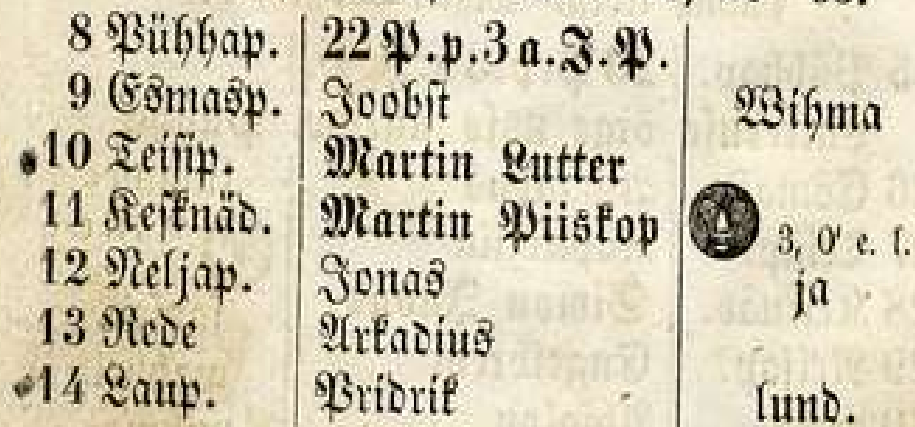 8 Pühhap. 22 P. p. 3 a. J. P.
9 Esmasp. Joobst Wihma
10 Teisip. Martin Lutter
11 Kesknäd. Martin Piiskop 3, 0' e. l.
12 Neljap. Jonas ja
13 Rede Arkadius
14 Laup. Pridrik lund.